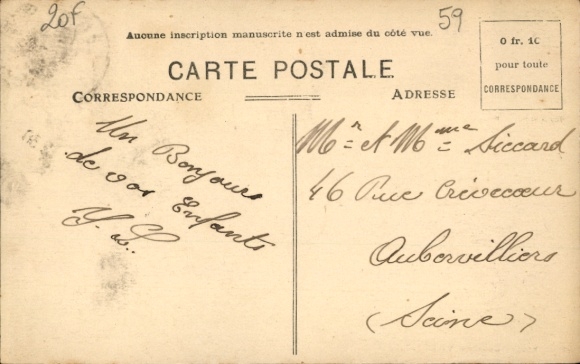 20f
59
Aucune inscription manuscrite n'est admise du côté vue.
CARTE POSTALE.
CORRESPONDANCE
ADRESSE
0 fr. 10
pour toute
CORRESPONDANCE
Un Bonjour
de vos Enfants
Y. S.
Mr et Mme Siccard
46 Rue Crèvecœur
Aubervilliers
(Seine)